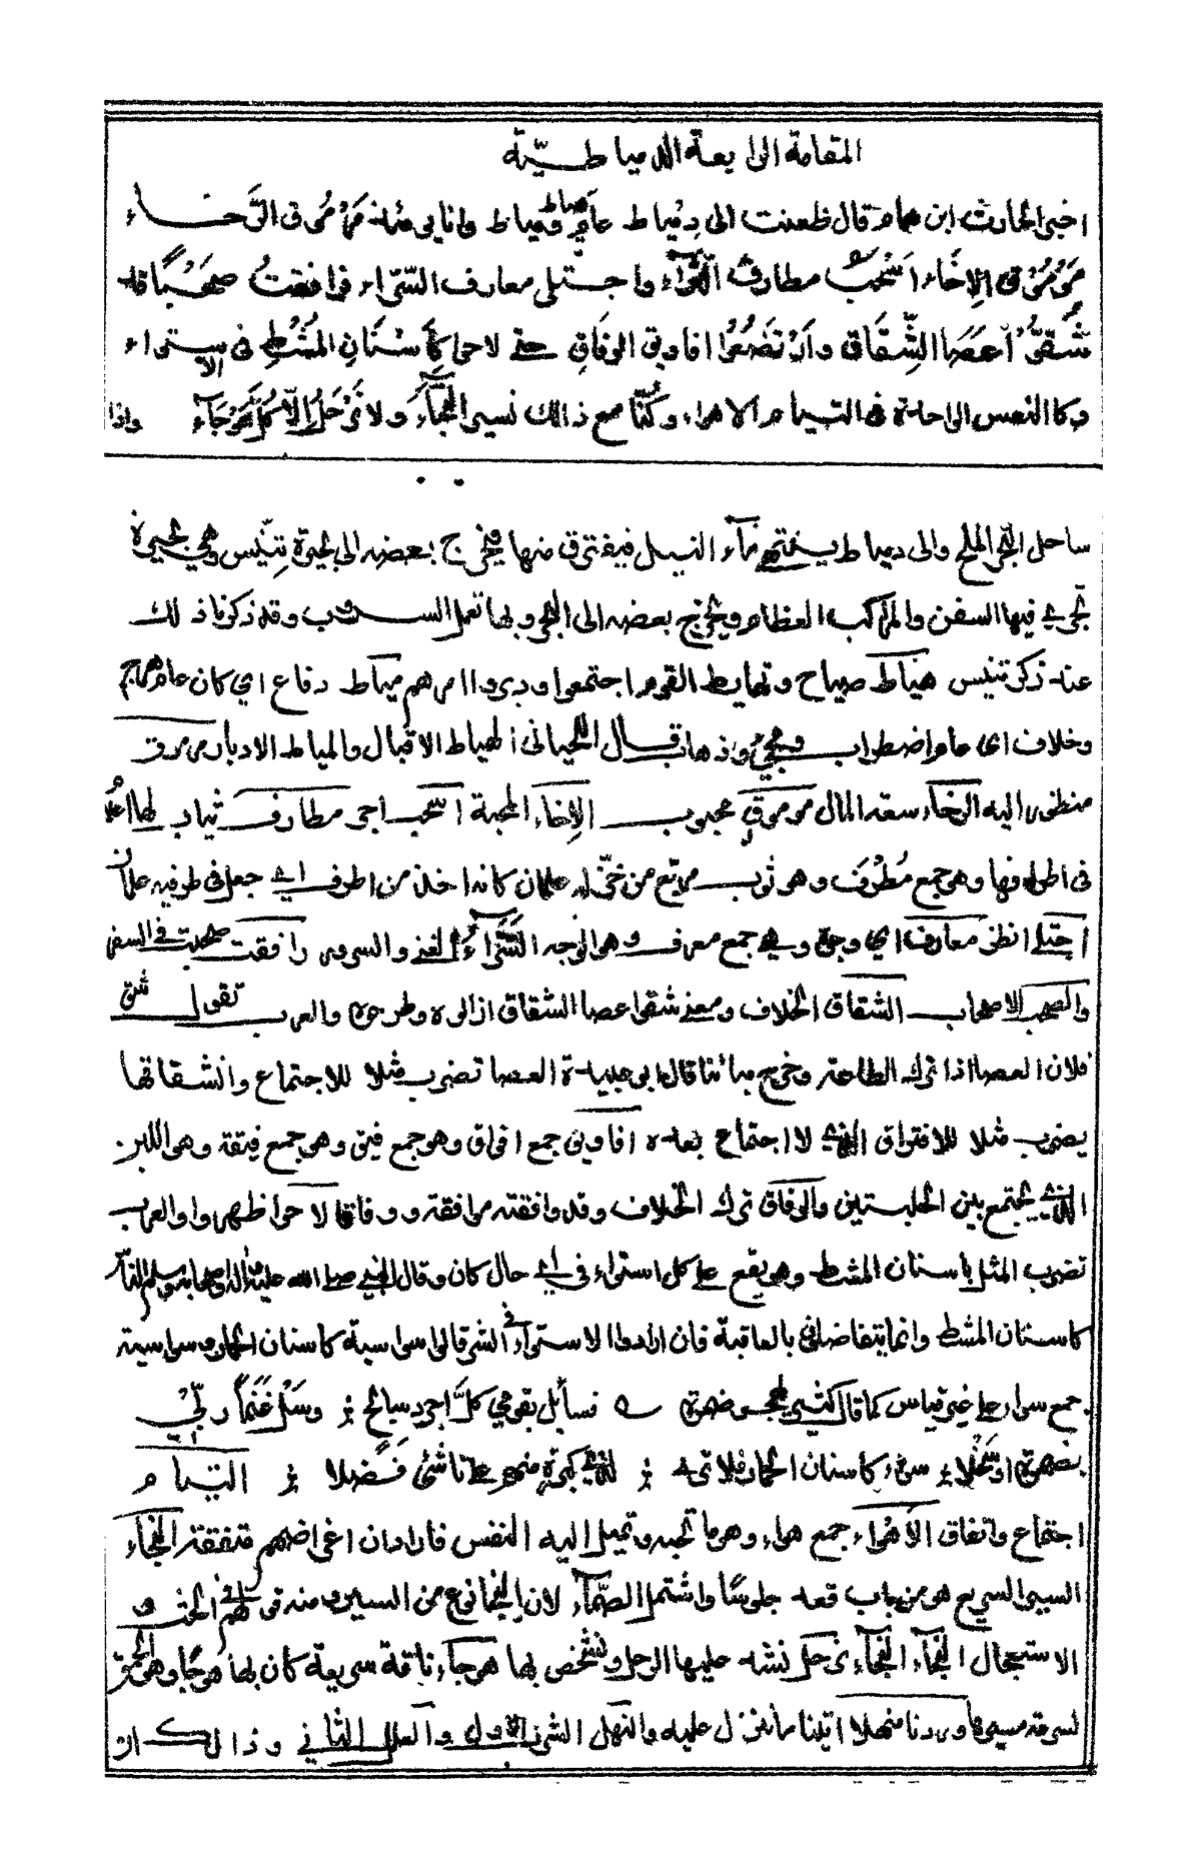 المقامة الرابعة الدمياطية
اخبر الحارث ابن همام قال ظعنت الى دمياط عام هياط ومياط وانا يومئذ مرموق الرخاء
موموق الاخاء اسحب مطارف الثراء واجتلي معارف السراء فرافقت صحبا قد
شقوا عصا الشقاق وارتضعوا افاويق الوفاق حتى لاحوا كاسنان المشط في الاستواء
وكالنفس الواحدة في التيام الاهواء وكنا مع ذالك نسير النجاء ولا نرحل الا كل هوجاء واذا
ساحل البحر المالح والى دمياط ينتهي ماء النيل فيفترق منها فيخرج بعضه الى بحيرة تنيس وهي بحيرة
تجري فيها السفن والمراكب العظام ويخرج بعضه الى البحر وبها تعمل وقد ذكرنا ذلك
عند ذكر تنيس هياط صياح وتهايط القوم اجتمعوا ودبروا امرهم مياط دفاع اي كان عام
وخلاف اي عام اضطراب ومجئ وذهاب قال اللحياني الهياط الاقبال والمياط الادبار مرموق
منظور اليه الرخاء سعة المال موموق محبوب الاخاء المحبة اسحب اجر مطارف ثياب لها اعلام
في اطرافها وهو جمع مطرف وهو ثوب مربع من خز له علمان كانه اخذ من اطرف اي جعل في طرفيه علمان
اجتلي انظر معارف اي وجوه وهي جمع معرف وهو الوجه السراء الغنى والسرور رافقت صحبت في السفر
والصحب الاصحاب الشقاق الخلاف ومعنى شقوا عصا الشقاق ازالوه وطرحوه والعرب تقول شق
فلان العصا اذا ترك الطاعة وخرج قال ابو العصا تضرب مثلا للاجتماع وانشقاقها
يضرب مثلا للافتراق الذي لا اجتماع بعده افاويق جمع افواق وهو جمع فيق وهو جمع فيقة وهو اللبن
الذي يجتمع بين الحلبتين والوفاق ترك الخلاف وقد وافقته موافقة ووفاقا لاحوا ظهروا والعرب
تضرب المثل باسنان المشط وهو يقع على كل استواء في اي حال كان وقال النبي صلى الله عليه واله واصحابه وسلم الناس
كاسنان المشط وانما يتفاضلون بالعاقبة فان ارادوا الاستواء في الشر قالوا سواسية كاسنان الحمار وسواسية
جمع سواء على غير قياس كما قال كثير
سواء كاسنان الحمار فلا ترى لذي كبرة منهم على ناشئ فضلا التيام
اجتماع واتفاق الاهواء جمع هواء وهو ما تحبه وتميل اليه النفس فاراد ان اغراضهم متفقة النجاء
السير السريع هو من باب قعد جلوسا واشتمل الصماء لان النجا نوع من السير ومنه قولهم في
الاستعجال النجاء النجاء نرحل نشد عليها الرحل ونشخص بها هوجاء ناقة سريعة كان بها هوجا وهو الحمق
لسرعة سيرها وردنا منهلا اتينا ما ننزل عليه والنهل الشرب الاول والعلل الثاني وذالك ان